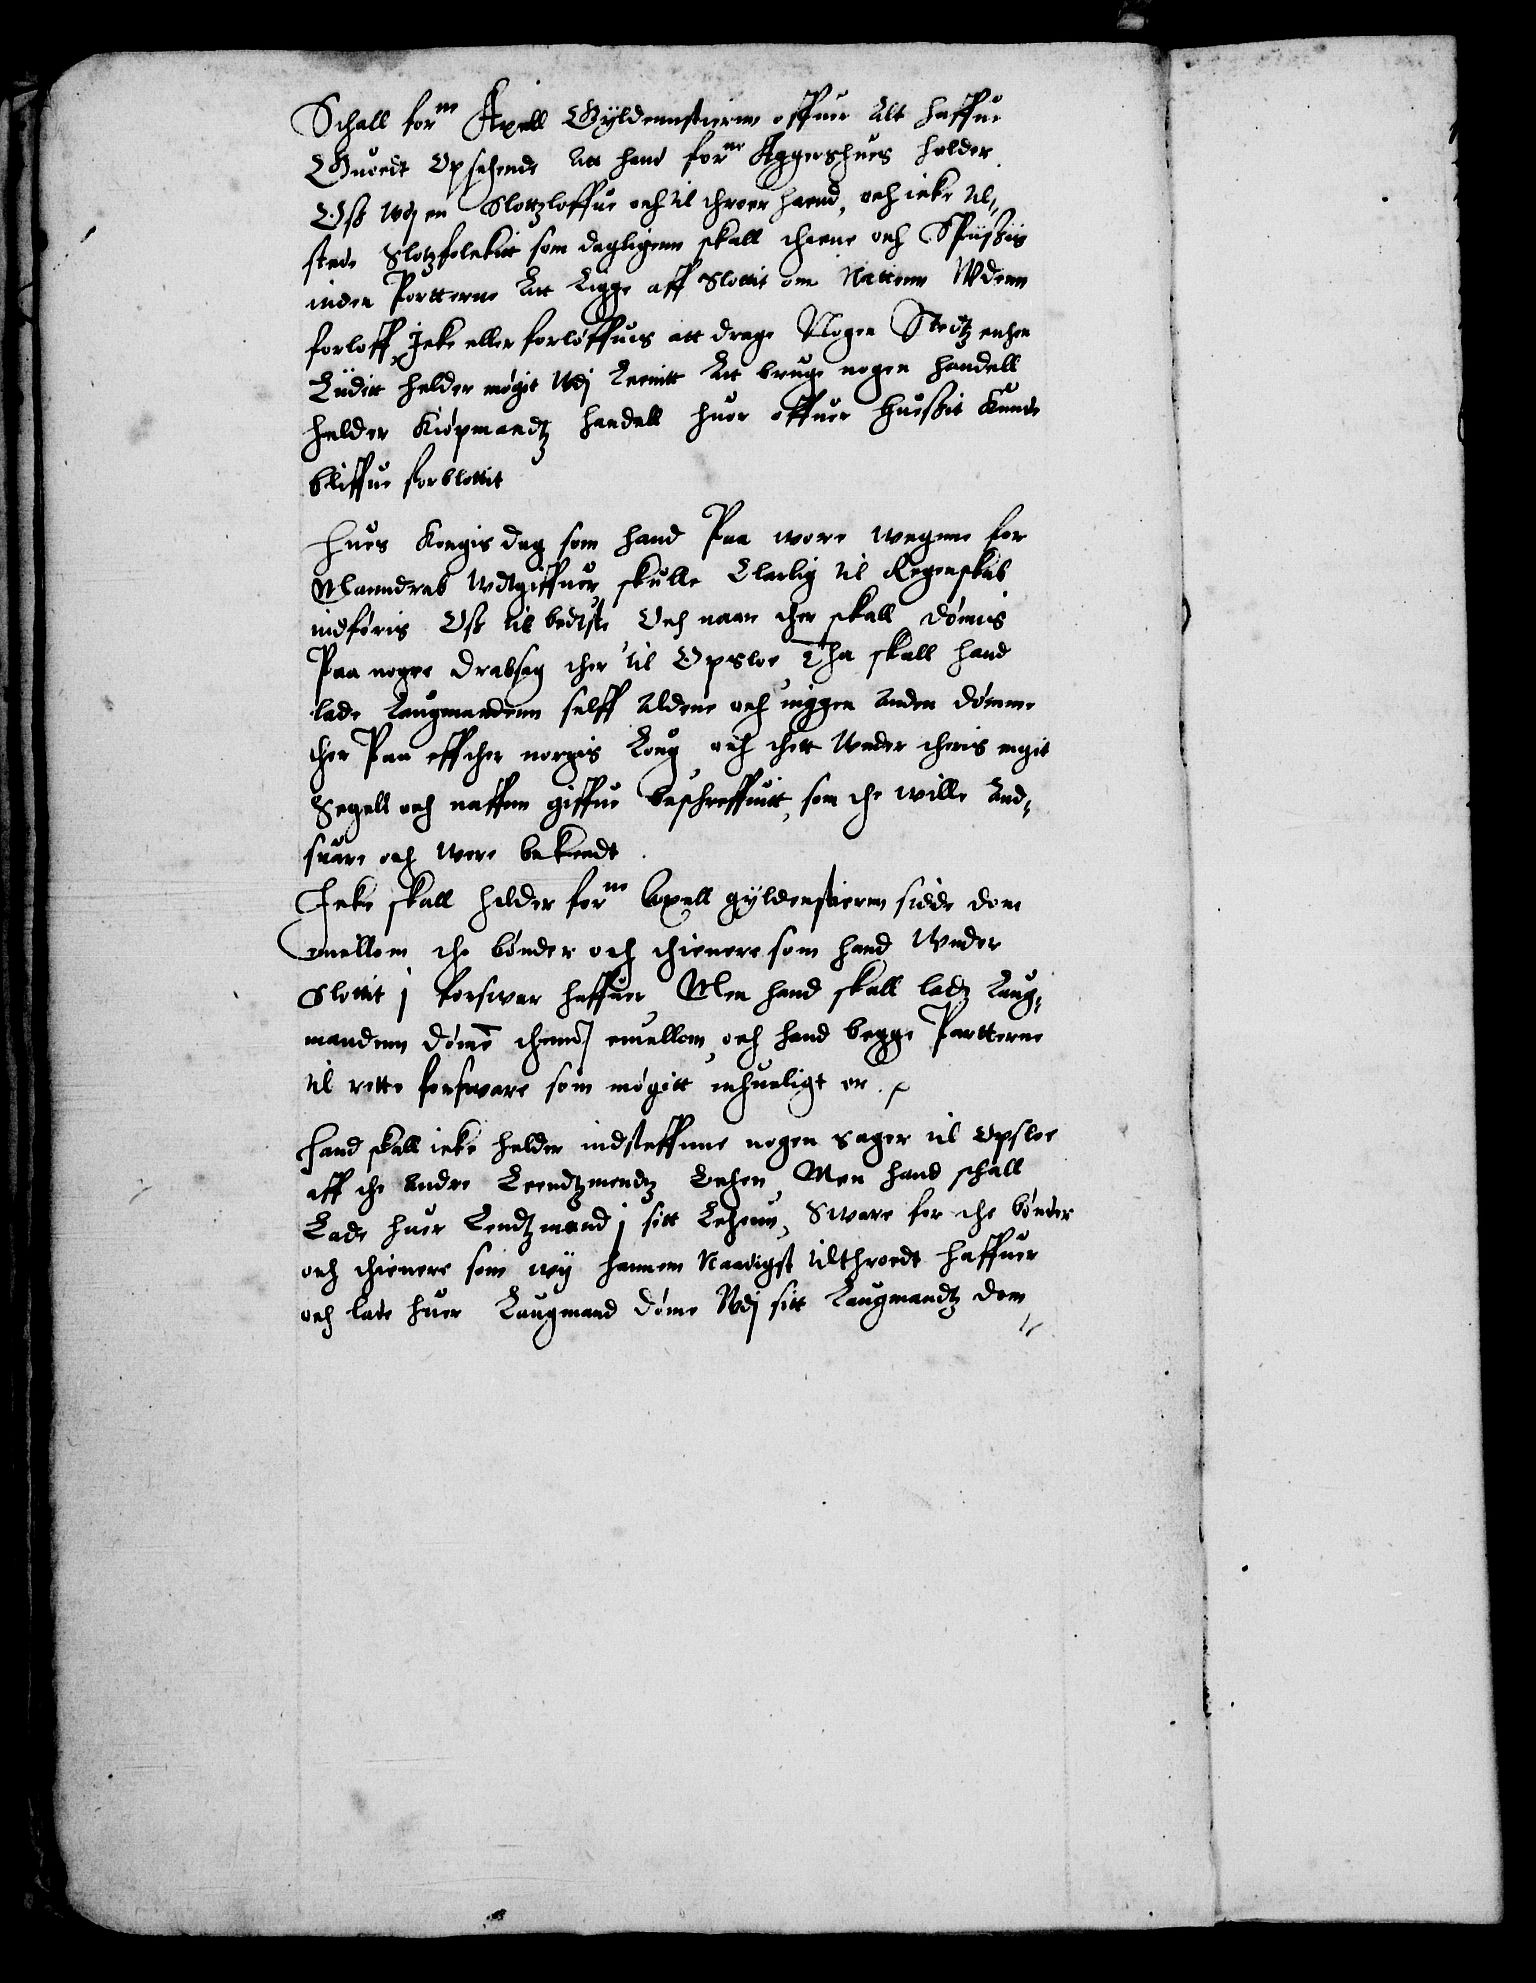 Schall forne Axell Gÿldennstiernn offuer Alt haffue
Guoedt Opsehende Att hand forne Aggershuus holder
Oß Udj en Slottzloffue och til throer haend, och icke til¬
stede Slotzfolckitt som dagligenn skall thiene och Spiißis
inden Portterne Att Ligge aff Slottit om Nattenn Wdenn
forloff Icke eller forløffuis att drage Nogen Stedtz enhen
Eüditt helder møgit Udj Leenitt Att bruge nogen handell
helder Kiøpmandtz handell huor offuer Hueßit Kunde
bliffue forblottit
Hues Kongis dag som hand Paa wore wegne for
Manndrab Wdtgiffuer, skulle Clarlig til Regenskab
indføris Oß til bedtste Och naar ther skall dømis
Paa nogre drabsag ther til Opsloe Tha skall hand
lade Laugmandenn selff Aldene och inggen Anden dømme
ther Paa effther norgis Loug och thett Wnder theris eigit
Segell och naffnn giffue beschreffuitt, som the wille And¬
suare och were bekiendt.
Icke skall helder forne Axell gÿldenstiernn sidde dom
emellom the bønder och thienere som hand Wnder
Slottit j forswar haffuer Men hand skall ladz Laug¬
mandenn dømē thennd emellom, och hand begge Partterne
til rette forsware som møgitt inhueligt er.
Hand skall icke helder indsteffnne nogen sager til Opsloe
aff the Andre Leendtzmendtz Lehen, Men hand schall
Lade huer Lendtzmand j sitt Lehenn, Sware for the bønder
och thienere som wÿ hannem Naadigst tilthroedt haffuer
och lade huer Laugmand døme Udj sitt Laugmandtz dom